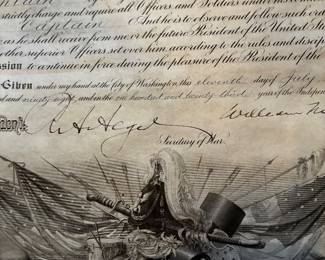 strictly charge and require all Officers and Soldiers under
Captain And he is to observe and follow such ord
as he shall receive from me or the future President of the United Sta
other superior Officers set over him according to the rules and discip
ssion to continue in force during the pleasure of the President of the
Given under my hand at the City of Washington this eleventh day of July
d and ninety eight, and in the one hundred and twenty third year of the Indepen
dent:
William
Secretary of War.